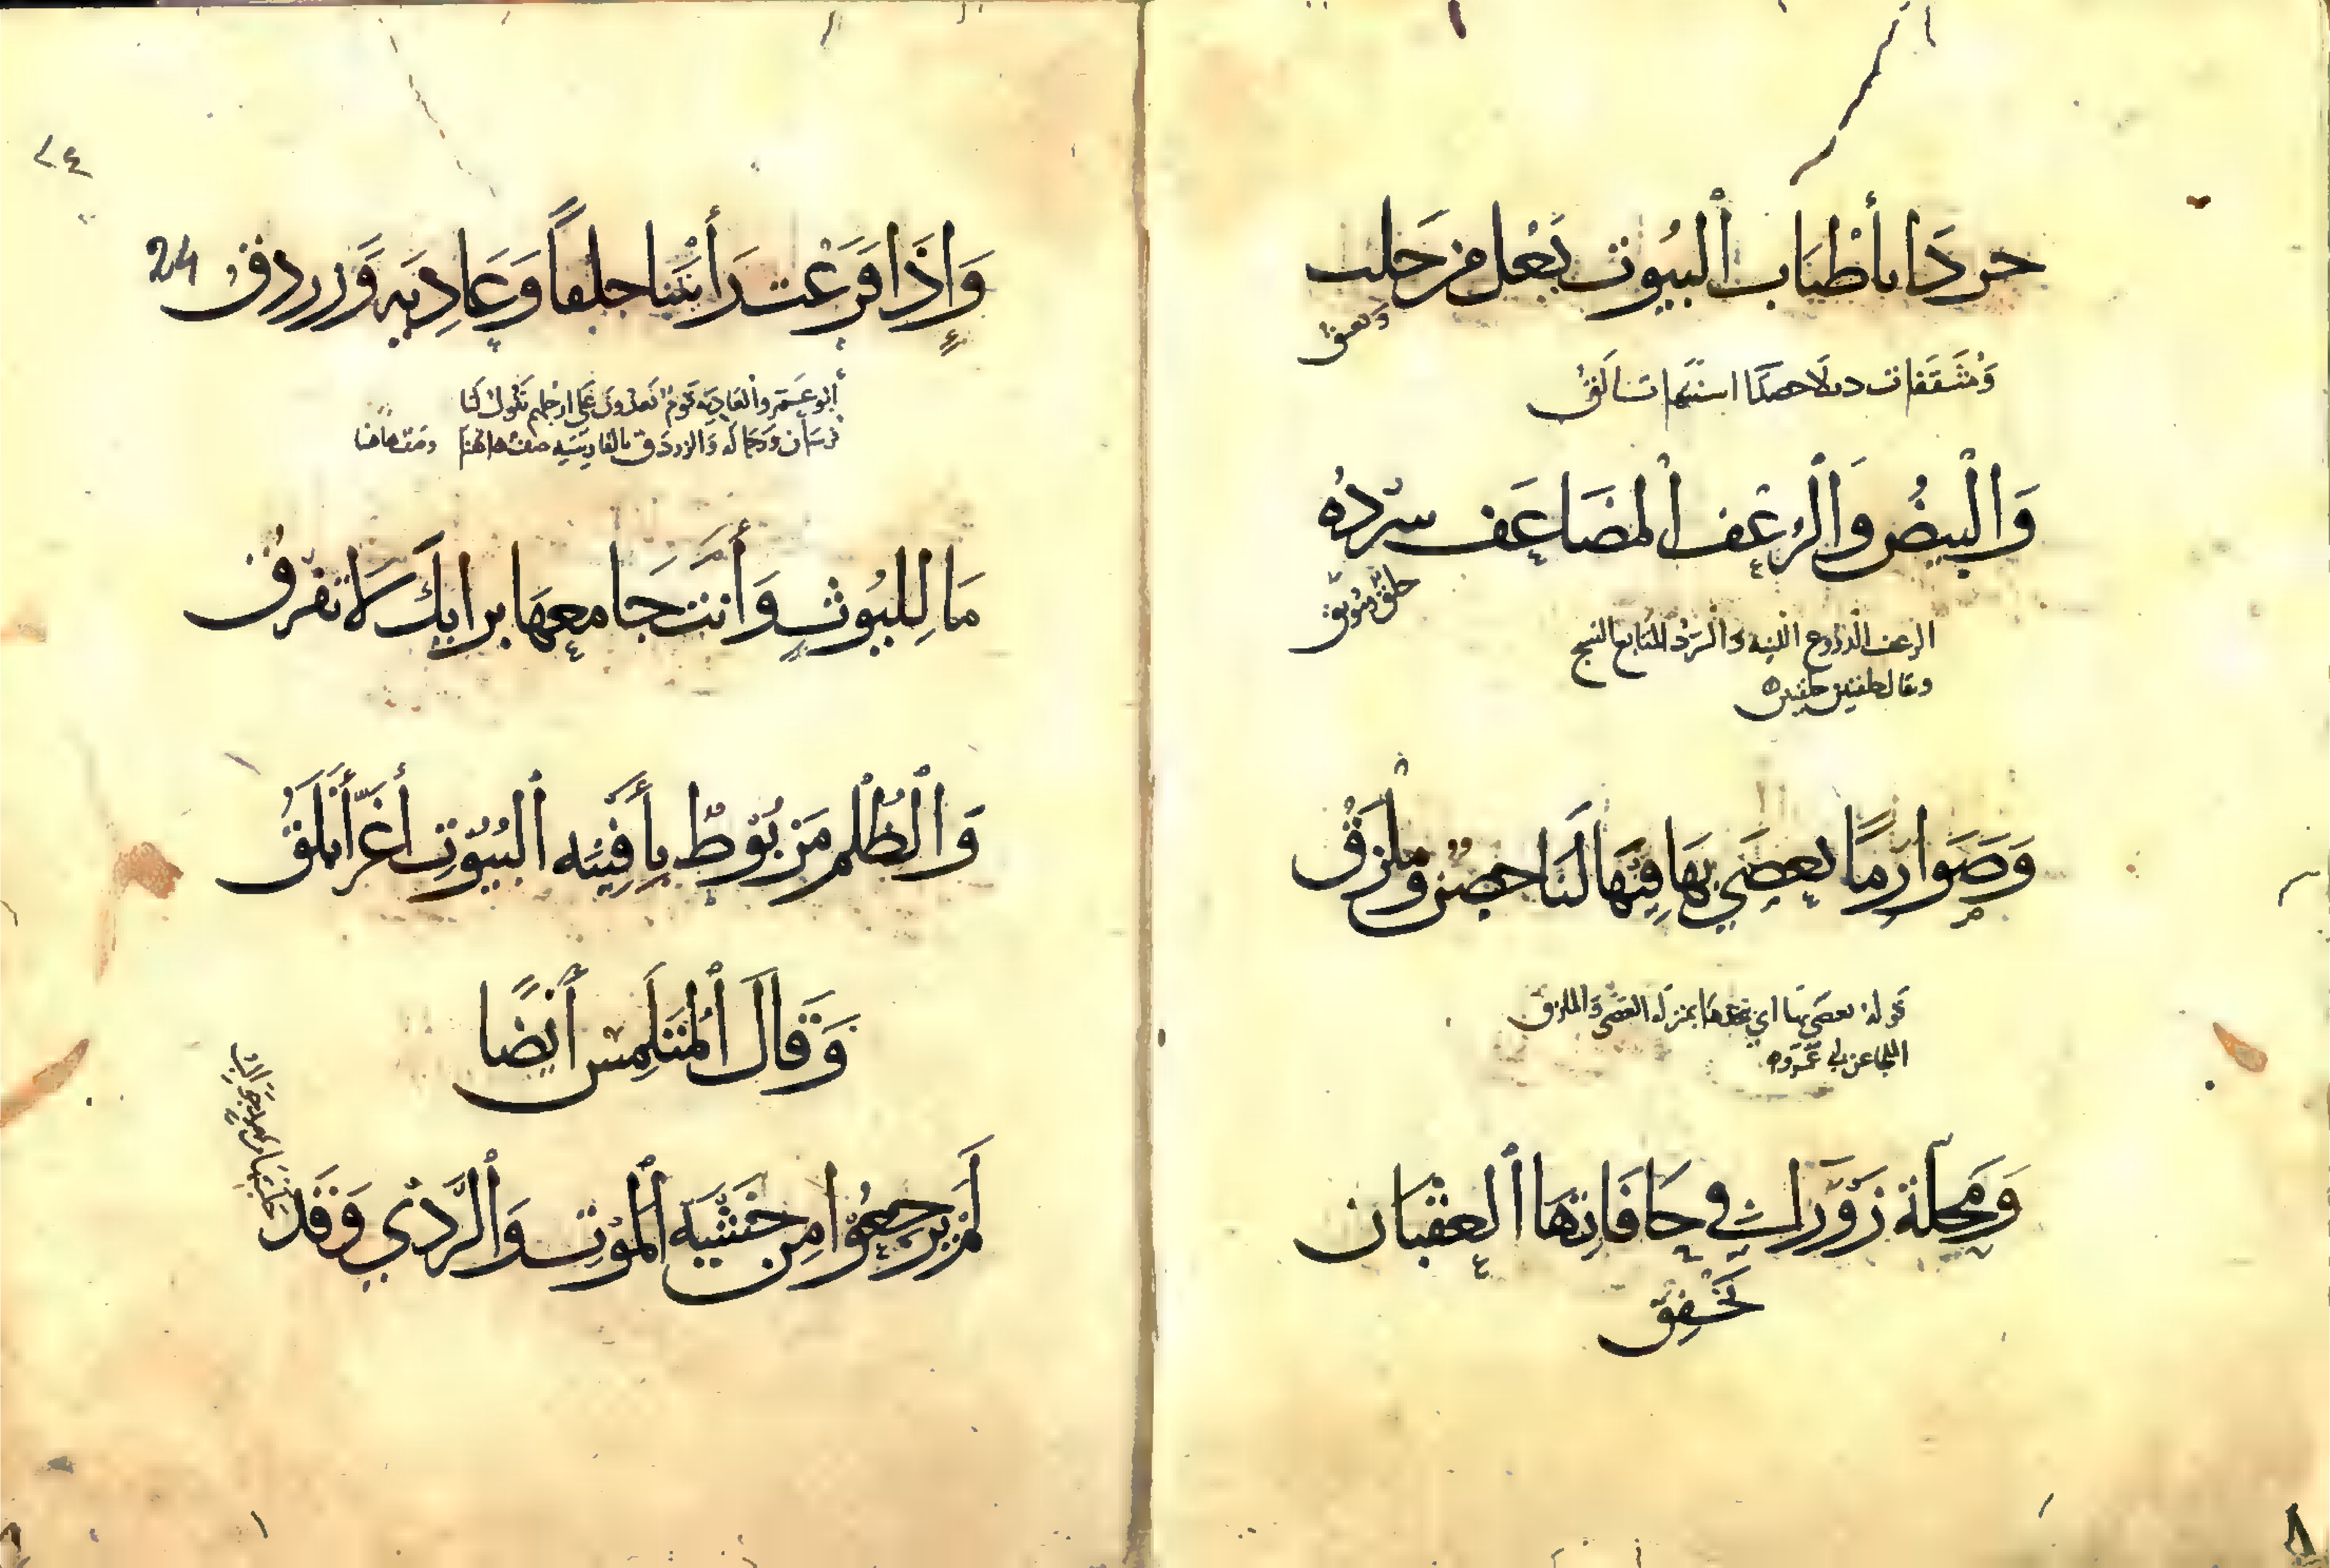 حردا بأطناب البيوت تعل من حلب
وتعبق
ومثقفات دبلا حصدا اسنتها تألق
وَالبيضُ وَالزغف المضاعَف سردهُ
حلق موثق
الزغف الدروع اللينه والسرد المتابع النسج
ويقال حلقتين حلقتين
وَصَوارمًا نعصَى بها فيها لَنَا حصن وملزق
قوله نعصى بها اي نجعلها بمنزلة العصى والملزق
الملجا عن ابي عمرو
وَمحلة زَوراء في حَافَاتِهَا العقبَان
تخفق
٢٤
وَإِذَا فَزعت رَأَيتنا حلقاً وَعَادِيَه وَزردق 24
أبو عمرو العاديه قوم يعدون على ارجلهم تقول لنا
فرسان ورجاله والزردق بالفارسيه صف هاهنا وصف هاهنا
مَا لِلبُيوت وَأنت جَامعهَا برايك لا تفرق
وَالظلم مَربُوط بأفنيه البُيُوتِ أغَرّ أبلَق
وَقَالَ المتَلمس أيضًا
لَم يرجعُوا مِن خشيَه المَوتِ والرّدي وَقَد